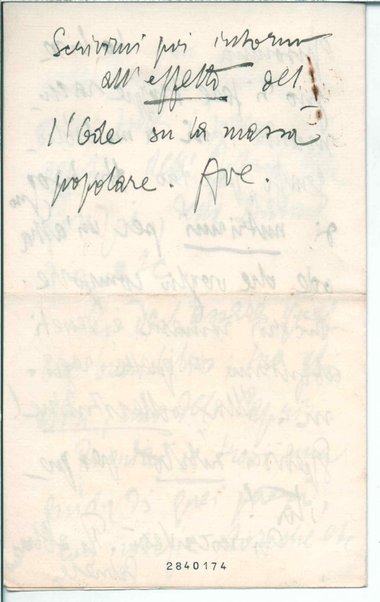 Scrivimi poi intorno
all'effetto del
l'Ode su la massa
popolare. Ave.
2840174